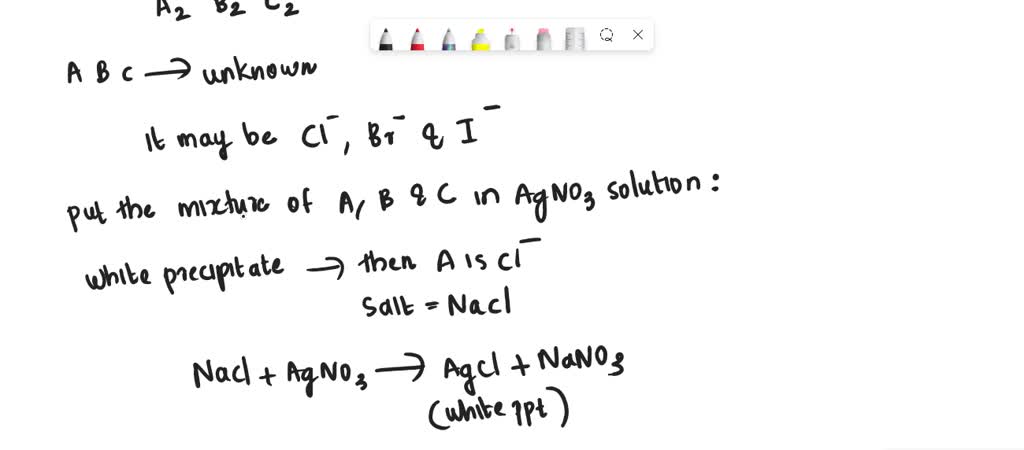 A₂ B₂ C₂
A B C → unknown
It may be Cl⁻, Br⁻ & I⁻
put the mixture of A, B & C in AgNO₃ solution:
white precipitate → then A is Cl⁻
Salt = Nacl
Nacl + AgNO₃ → AgCl + NaNO₃
(white ppt)